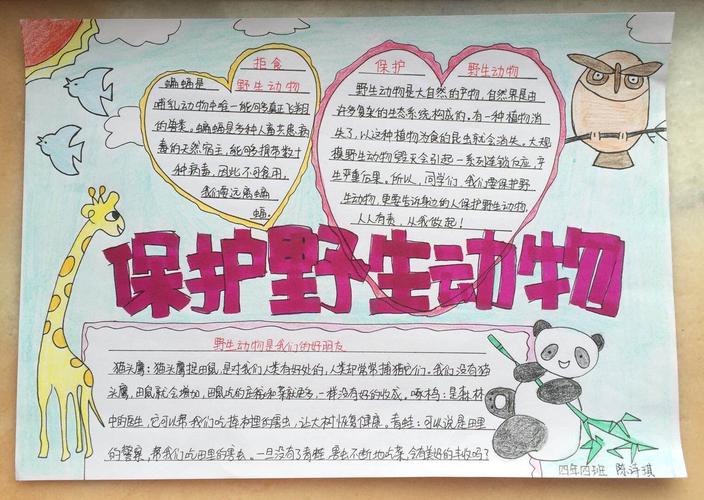 拒食
蝙蝠是 野生动物
哺乳动物中唯一能够真正飞翔
的兽类。蝙蝠是多种人畜共患病
毒的天然宿主，能够携带数十
种病毒。因此不可食用，
我们要远离蝙
蝠。
保护 野生动物
野生动物是大自然的产物，自然界是由
许多复杂的生态系统构成的。有一种植物消
失了，以这种植物为食的昆虫就会消失。大规
模野生动物毁灭会引起一系列连锁反应，产
生严重后果。所以，同学们，我们要保护野
生动物，更要告诉身边的人保护野生动物，
人人有责，从我做起！
保护野生动物
野生动物是我们的好朋友
猫头鹰：猫头鹰捉田鼠，是对我们人类有好处的，人类却常常捕猎它们。我们没有猫
头鹰，田鼠就会增加，田鼠吃的庄稼和草就更多，一样没有好的收成。啄木鸟：是森林
中的医生，它可以帮我们吃掉树里的害虫，让大树恢复健康。青蛙：可以说是田里
的警察，帮我们吃田里的害虫。一旦没有了青蛙，害虫不断地吃菜，会有美好的丰收吗？
四年四班 陈诗琪